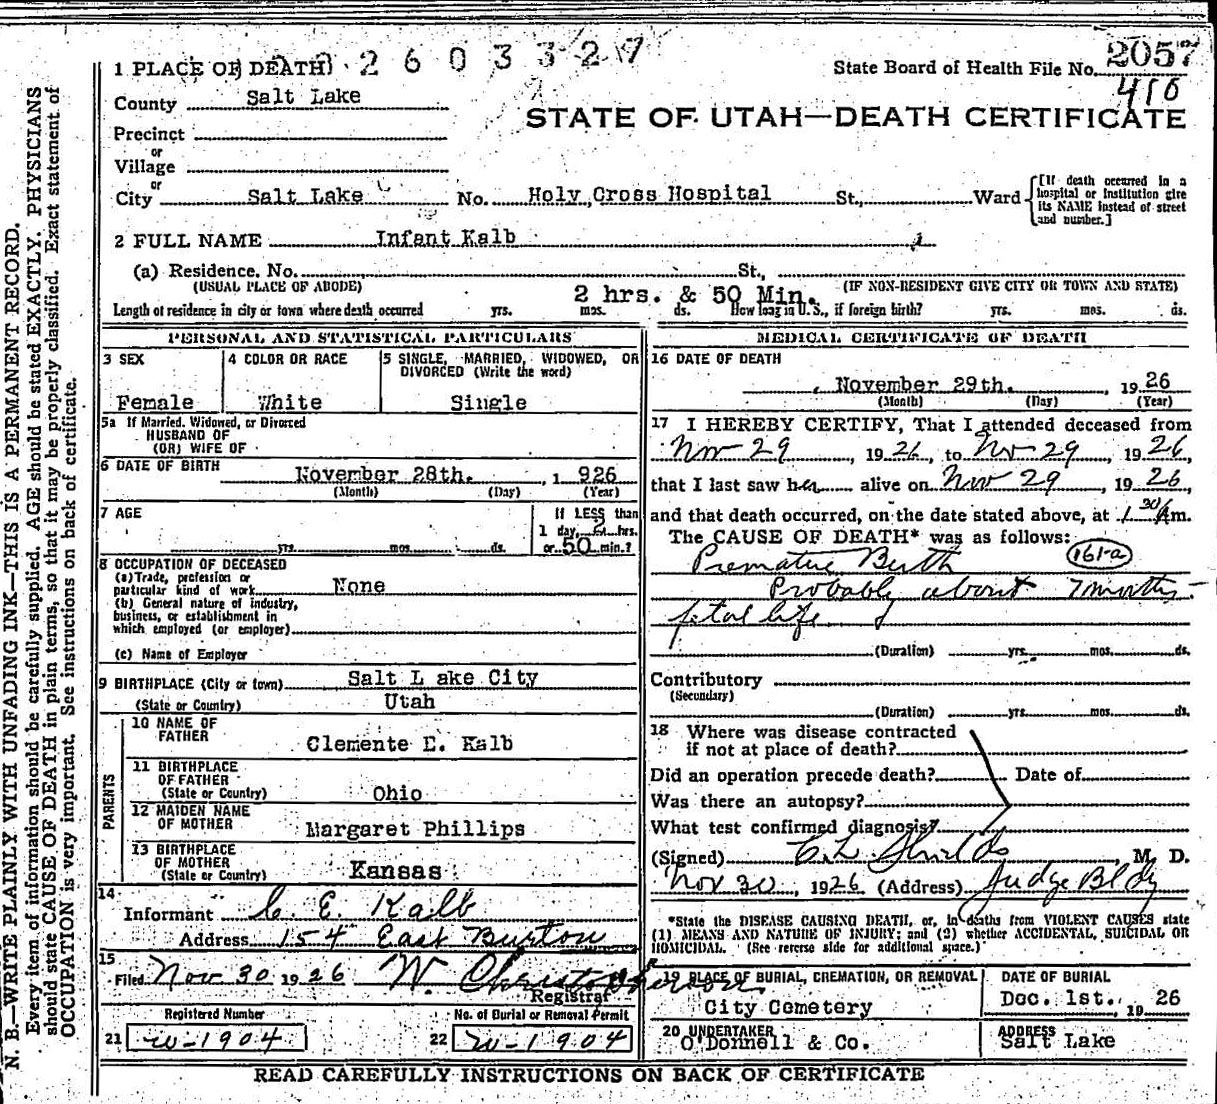 2603327
State Board of Health File No. 2057
410
1 PLACE OF DEATH
County Salt Lake
STATE OF UTAH—DEATH CERTIFICATE
Precinct
or
Village
or
City Salt Lake No. Holy Cross Hospital St., Ward
[If death occurred in a hospital or institution give its NAME instead of street and number.]
2 FULL NAME Infant Kalb
(a) Residence. No. St.,
(USUAL PLACE OF ABODE) (IF NON-RESIDENT GIVE CITY OR TOWN AND STATE)
2 hrs. & 50 Min.
Length of residence in city or town where death occurred yrs. mos. ds. How long in U.S., if foreign birth? yrs. mos. ds.
PERSONAL AND STATISTICAL PARTICULARS
3 SEX
Female
4 COLOR OR RACE
White
5 SINGLE, MARRIED, WIDOWED, OR
DIVORCED (Write the word)
Single
5a If Married, Widowed, or Divorced
HUSBAND OF
(OR) WIFE OF
6 DATE OF BIRTH November 28th. , 1 926
(Month) (Day) (Year)
7 AGE
yrs. mos. ds.
If LESS than
1 day, 2 hrs.
or 50 min.?
8 OCCUPATION OF DECEASED
(a) Trade, profession or
particular kind of work None
(b) General nature of industry,
business, or establishment in
which employed (or employer)
(c) Name of Employer
9 BIRTHPLACE (City or town) Salt L ake City
(State or Country) Utah
PARENTS
10 NAME OF
FATHER
Clemente E. Kalb
11 BIRTHPLACE
OF FATHER
(State or Country) Ohio
12 MAIDEN NAME
OF MOTHER
Margaret Phillips
13 BIRTHPLACE
OF MOTHER
(State or Country) Kansas
14
Informant C. E. Kalb
Address 154 East Burton
15
Filed Nov 30 1926 W. Christopherson
Registrar
Registered Number
21 w-1904
No. of Burial or Removal Permit
22 w-1904
MEDICAL CERTIFICATE OF DEATH
16 DATE OF DEATH
November 29th. , 1926
(Month) (Day) (Year)
17 I HEREBY CERTIFY, That I attended deceased from
Nov 29 , 1926, to Nov 29 , 1926,
that I last saw her alive on Nov 29 , 1926,
and that death occurred, on the date stated above, at 1 30 Am.
The CAUSE OF DEATH* was as follows:
Premature Birth 161-a
Probably about 7 months
fetal life
(Duration) yrs. mos. ds.
Contributory
(Secondary)
(Duration) yrs. mos. ds.
18 Where was disease contracted
if not at place of death?
Did an operation precede death? Date of
Was there an autopsy?
What test confirmed diagnosis?
(Signed) C.L. Shields , M. D.
Nov 30 , 1926 (Address) Judge Bldg
*State the DISEASE CAUSING DEATH, or, in deaths from VIOLENT CAUSES state
(1) MEANS AND NATURE OF INJURY; and (2) whether ACCIDENTAL, SUICIDAL OR
HOMICIDAL. (See reverse side for additional space.)
19 PLACE OF BURIAL, CREMATION, OR REMOVAL
City Cemetery
DATE OF BURIAL
Dec. 1st. , 19 26
20 UNDERTAKER
O'Donnell & Co.
ADDRESS
Salt Lake
READ CAREFULLY INSTRUCTIONS ON BACK OF CERTIFICATE
N. B.—WRITE PLAINLY WITH UNFADING INK—THIS IS A PERMANENT RECORD.
Every item of information should be carefully supplied. AGE should be stated EXACTLY. PHYSICIANS
should state CAUSE OF DEATH in plain terms, so that it may be properly classified. Exact statement of
OCCUPATION is very important. See instructions on back of certificate.